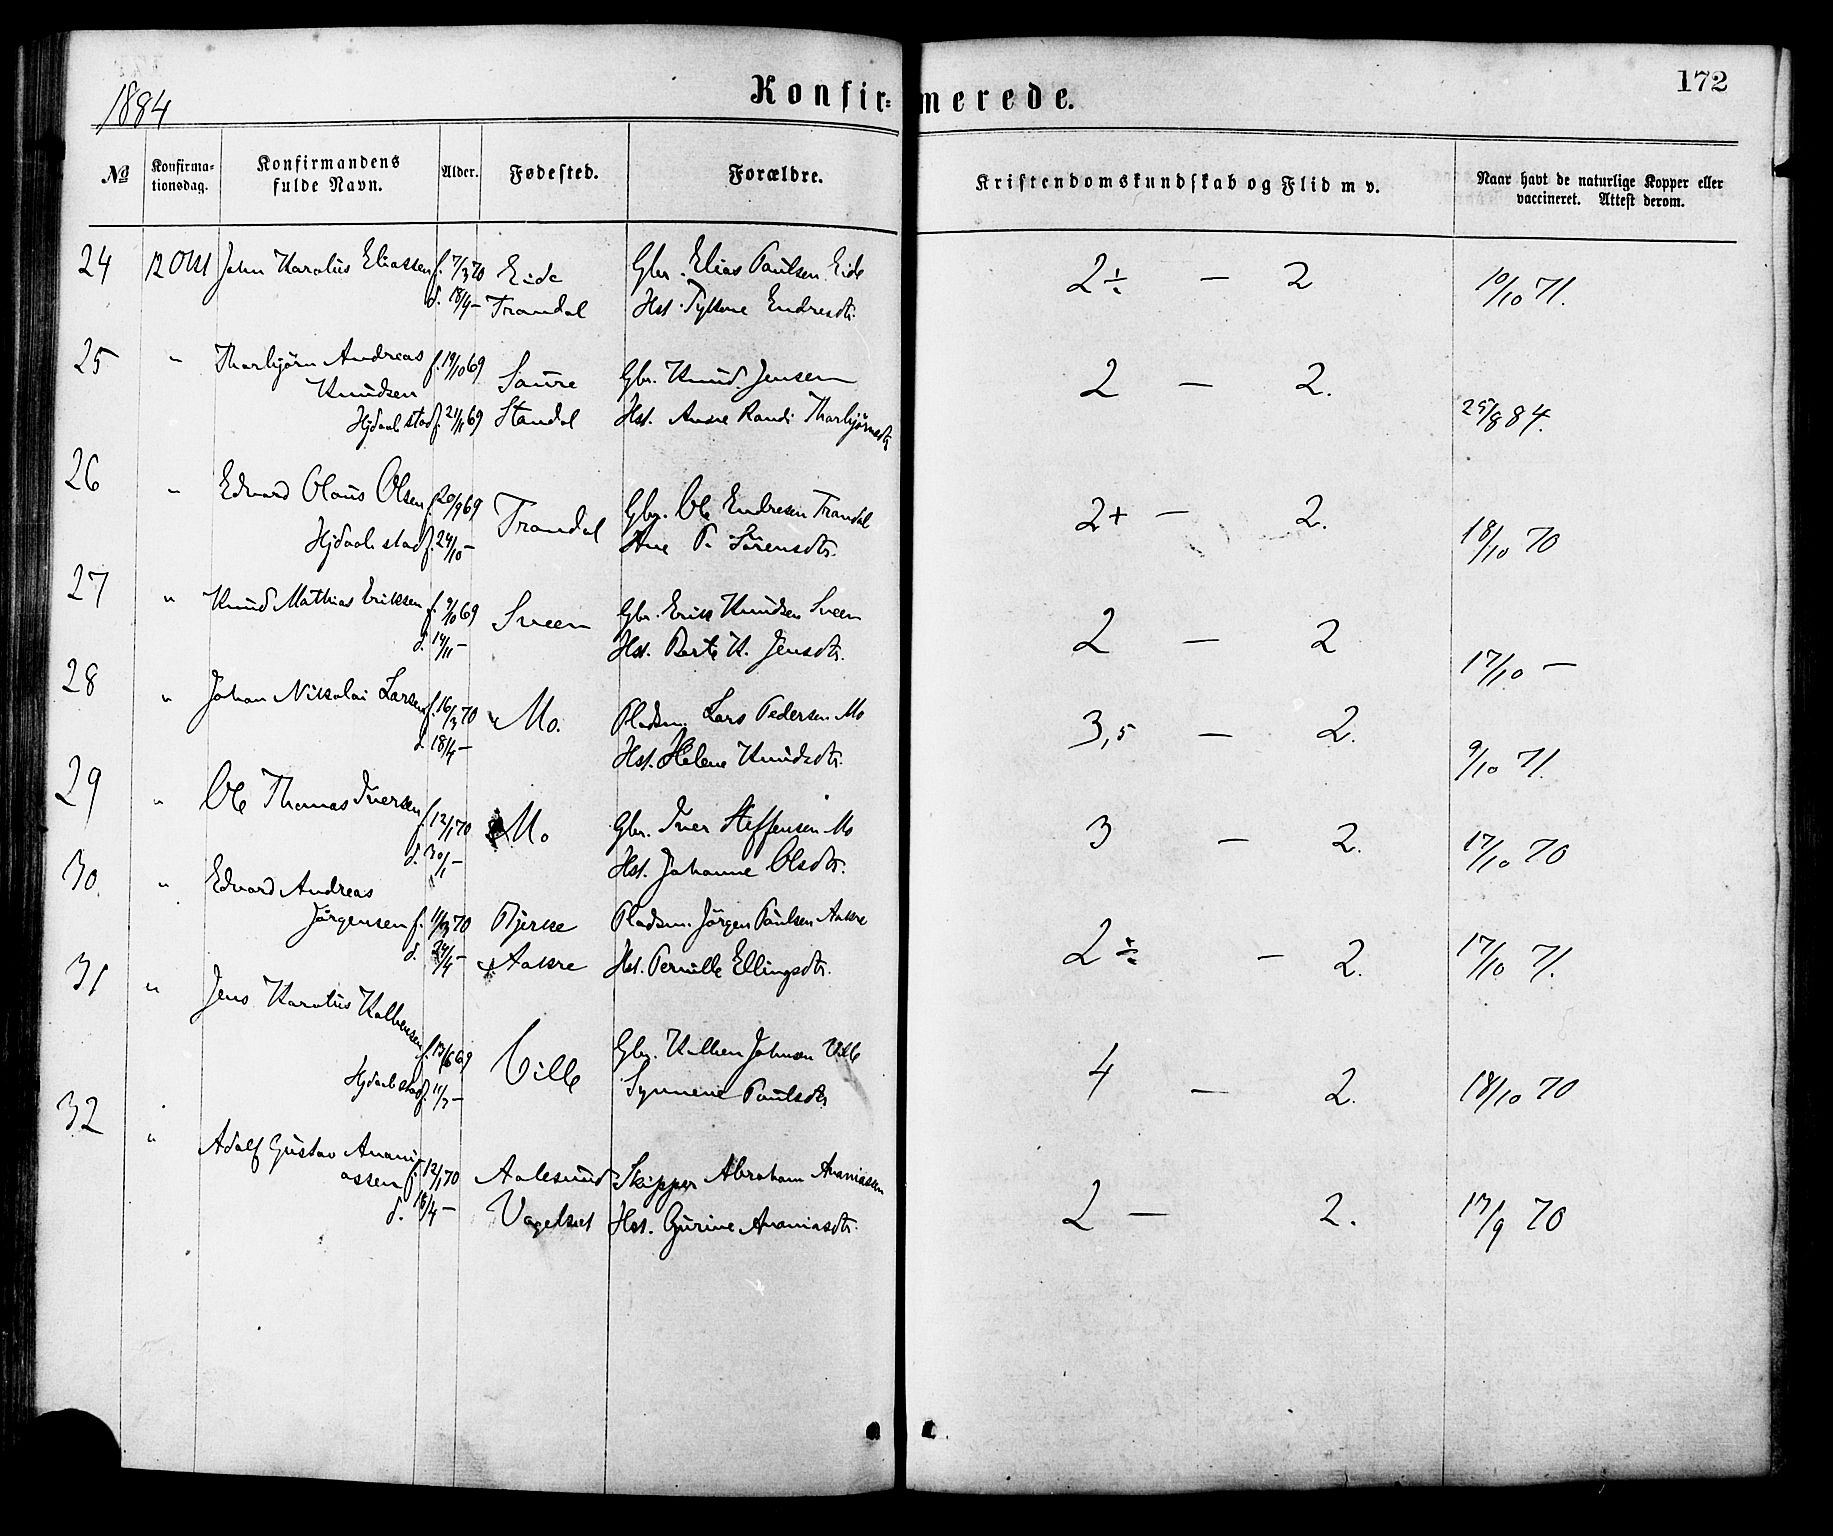 1884
Konfir=merede.
172
№
Konfirma-
tionsdag.
Konfirmandens
fulde Navn.
Alder.
Fødested.
Forældre.
Kristendomskundskab og Flid m v.
Naar havt de naturlige Kopper eller
vaccineret. Attest derom.
24 12 Okt John Karolus Eliassen f. 7/3 70 Eide Gbr. Elias Paulsen Eide 2÷ — 2 10/10 71.
d. 18/4 – Trandal Hst. Endresdtr.
25 " Thorbjørn Andreas f. 19/10 69 Saure Gbr. Knud Jensen 2 — 2.
Knudsen
Hjdøbt stadf. 21/11 69 Standal Hst. Anne Randi Thorbjørnsdtr 25/8 84.
26 " Edvard Olaus Olsen f. 20/9 69 Trandal Gbr. Ole Endresen Trandal 2+ — 2. 18/10 70
Hjdøbt stadf. 24/10 – Ane P. Sørensdtr.
27 " Knud Mathias Eriksen f. 9/10 69 Sveen Gbr. Erik Knudsen Sveen 2 — 2 17/10 –
d. 14/11 – Hst. Berte K. Jensdtr.
28 " Johan Nikolai Larsen f. 16/3 70 Mo. Pladsm. Lars Pedersen Mo 3,5 — 2. 9/10 71.
d. 18/4 – Hst. Helene Knudsdtr.
29 " Ole Thomas Iversen f. 12/1 70 Mo Gbr. Iver Steffensen Mo 3 — 2. 17/10 70
d. 30/1 – Hst. Johanne Olsdtr.
30. " Edvard Andreas
Jørgensen f. 11/3 70 Bjerke Pladsm. Jørgen Paulsen Aakre 2÷ — 2. 17/10 71.
d. 24/4 – Aakre Hst. Pernille Ellingsdtr.
31 " Jens Karolus Kolbensen
f. 13/6 69 Ville Gbr. Kolben Johnsen Ville 4 — 2. 18/10 70
Hjdøbt stadf. 11/7 – Synneve Paulsdtr
32 " Adolf Gustav Anani-
assen f. 12/1 70 Aalesund Skipper Abraham Ananiassen 2 — 2. 17/9 70
d. 18/4 – Hst. Gurine Ananiasdtr.